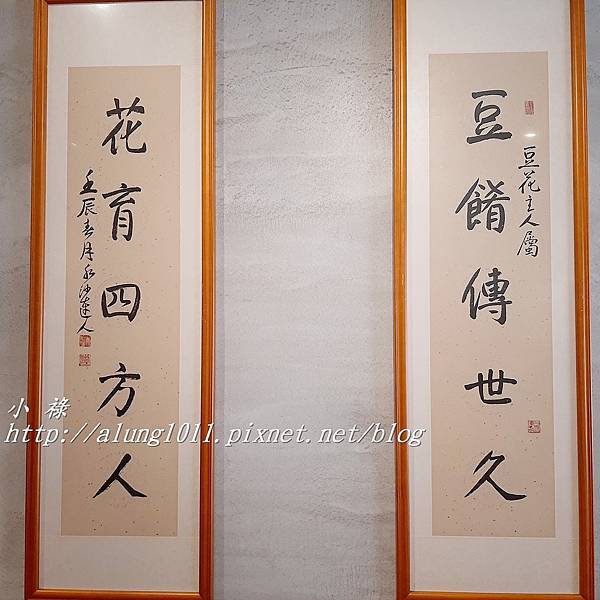 豆餚傳世久
豆花主人屬
花育四方人
壬辰春月
小祿
http://alung1011.pixnet.net/blog